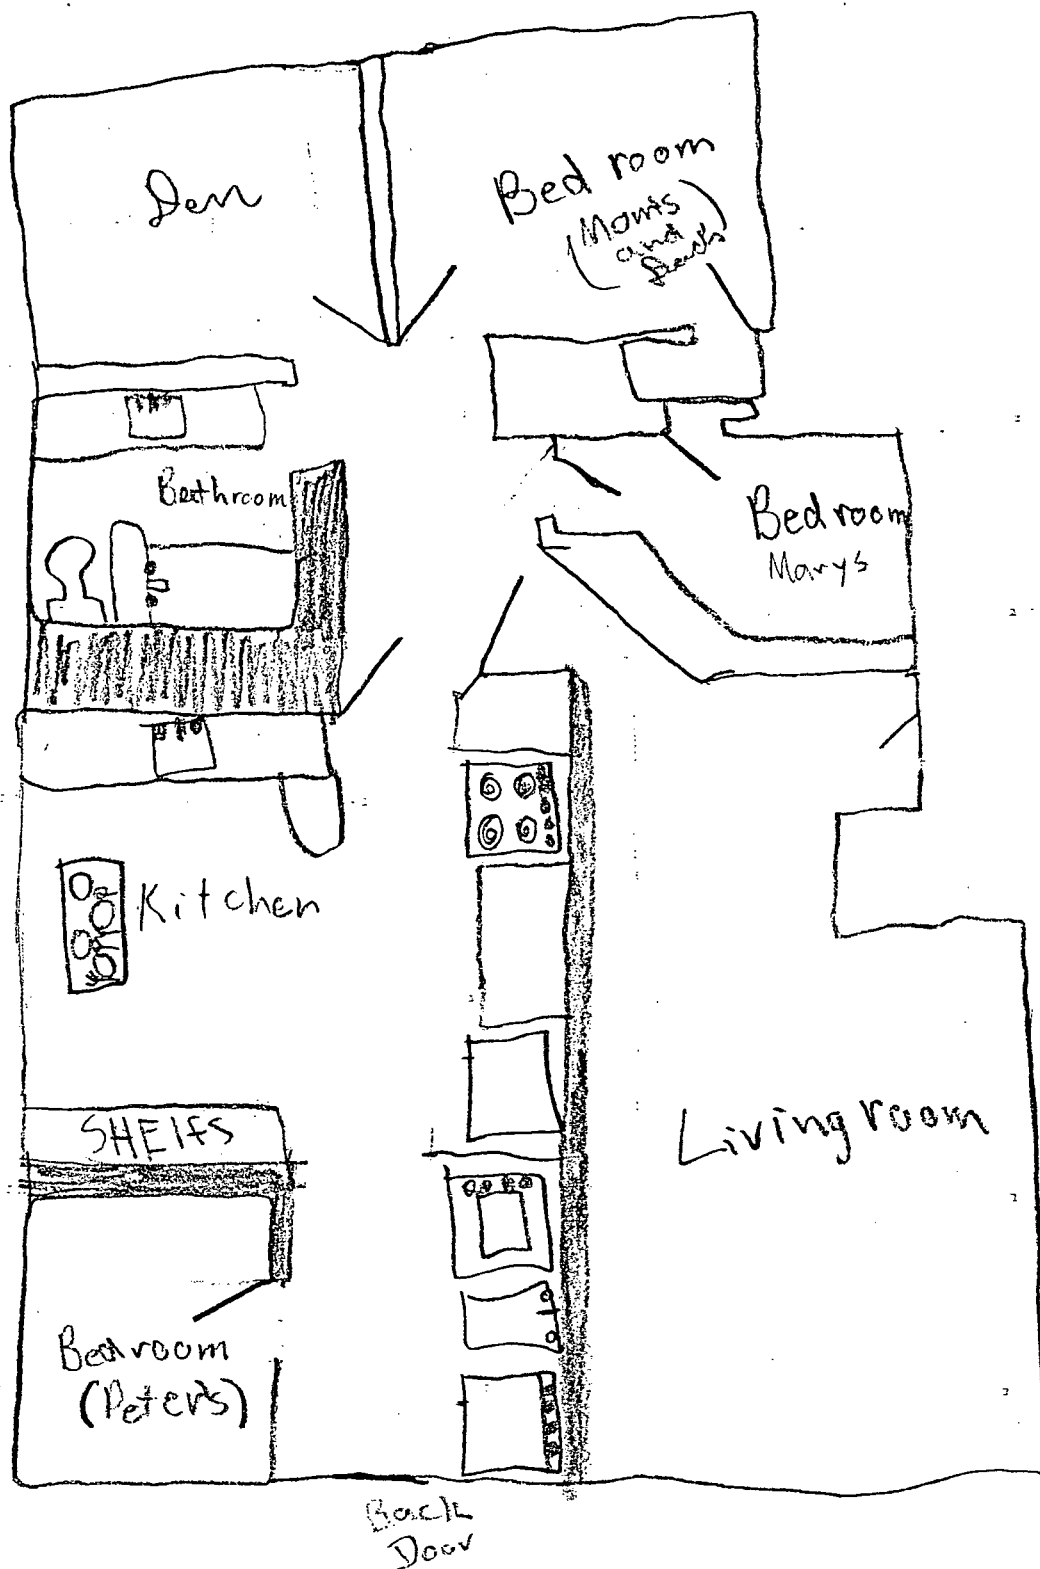 Den
Bed room
(Mom's
and
Dad's)
Bathroom
Bedroom
Marys
Kitchen
SHElfS
Livingroom
Bedroom
(Peter's)
Back
Door